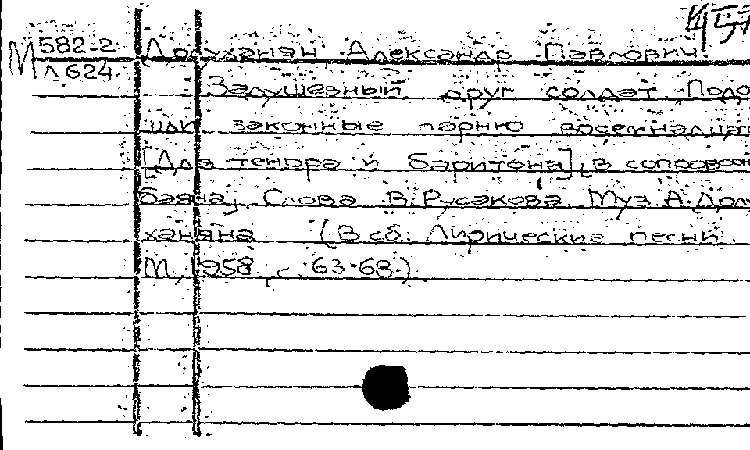 М 582-2 Долуханян Александр Павлович.
Л 624.
Задушевный друг солдат. Подо
или законные парню восемнадцат
[Два тенора и баритона], в сопровож
баяна, Слова В. Русакова. Муз. А. Долу
ханяна (В сб. Лирические песни
М., 1958, с. 63-68.)